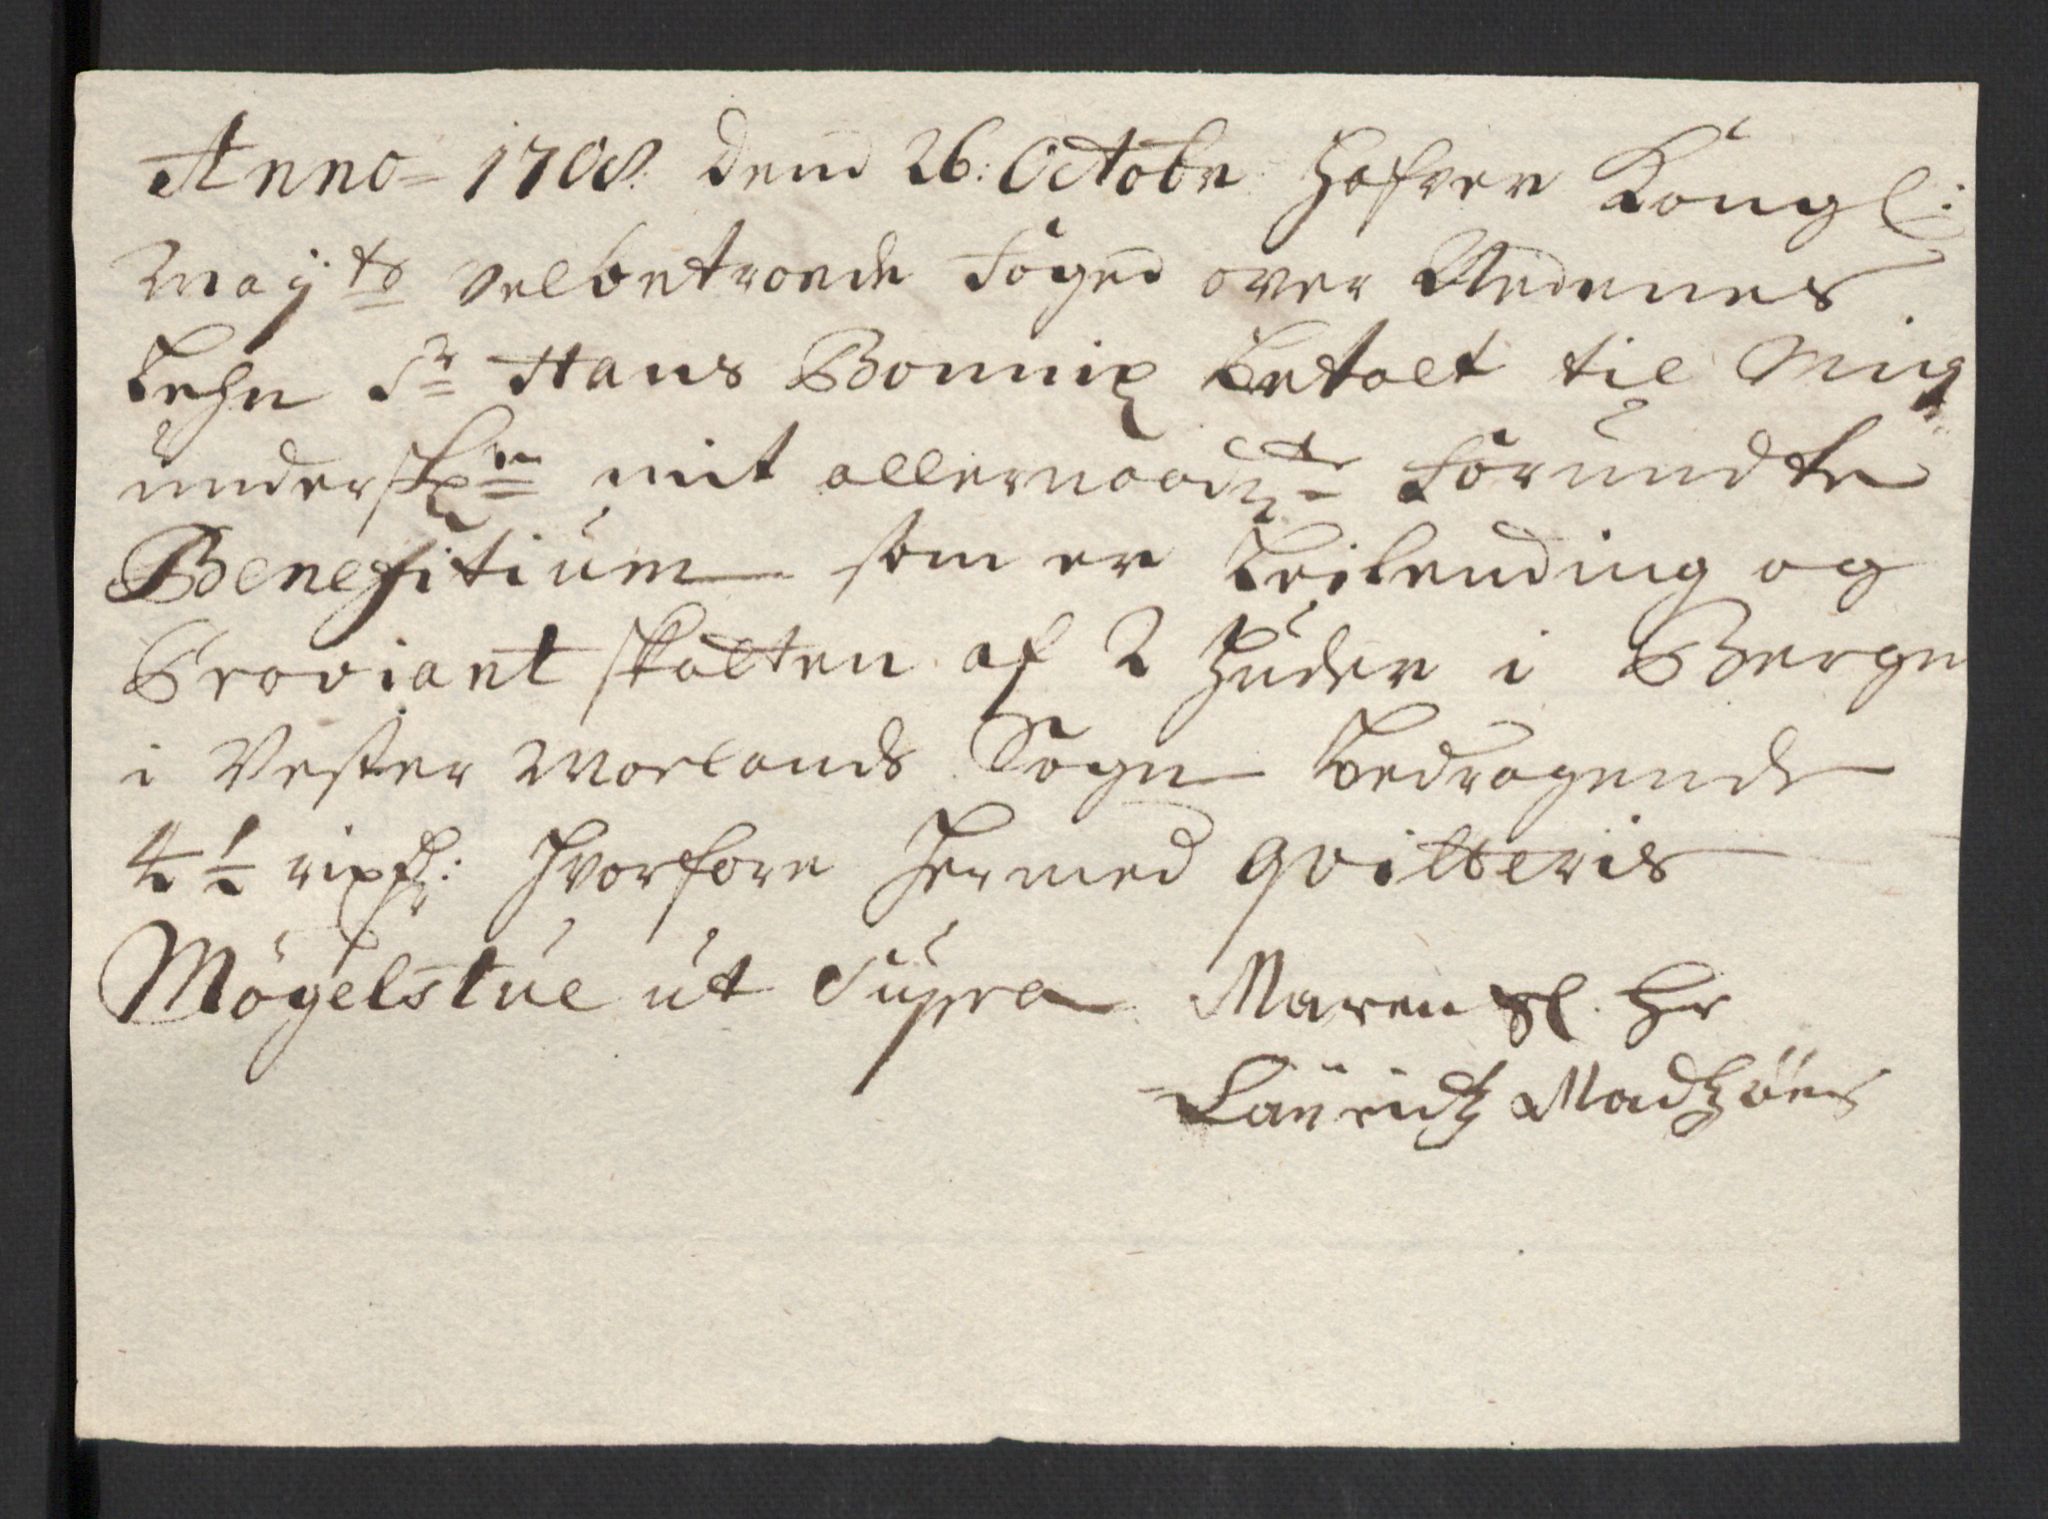 Anno 1708 dend 26: Octobr hafver Kongl:
Maÿts velbetroede foged over Nedenes
Lehn Sr Hans Bonnix betalt til mig
underskr mit allernaadte forundte
Benefitium som er Leilending og
Proviant skatten af 2 huder i Berge
i Vester Molands Sogn bedragende
4½ rixdr: hvorfore hermed qvitteris
Mögelstue ut Supra Maren Sl. Hr
Lauridtz Madtzöns